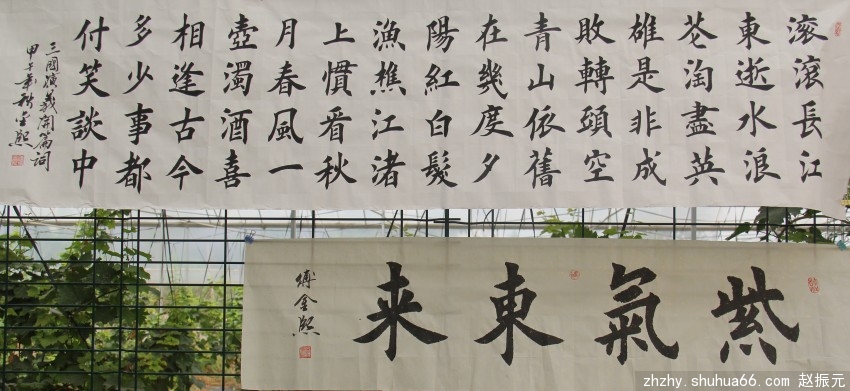 滚滚長江
東逝水浪
花淘盡英
雄是非成
敗轉頭空
青山依舊
在幾度夕
陽紅白髮
漁樵江渚
上慣看秋
月春風一
壺濁酒喜
相逢古今
多少事都
付笑談中
三國演義開篇詞
甲午年秋金熙
紫氣東来
傅金熙
zhzhy.shuhua66.com 赵振元